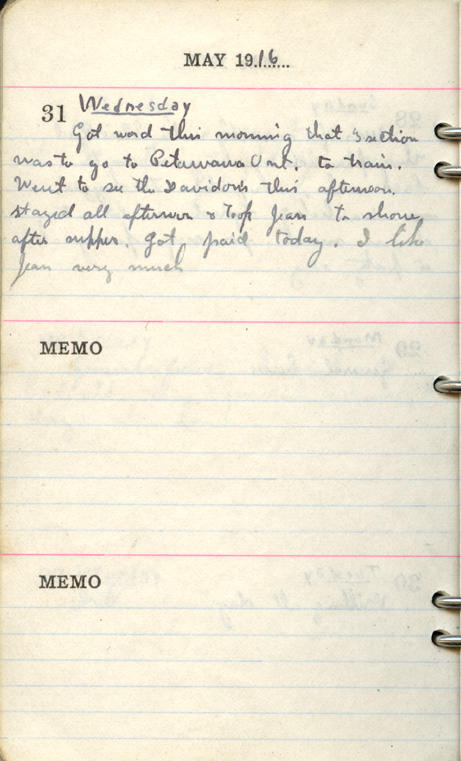 MAY 1916
31 Wednesday
Got word this morning that 3 section
was to go to Petawawa Ont. to train.
Went to see the Davidson's this afternoon.
stayed all afternoon & took Jean to show
after supper. Got paid today. I like
Jean very much
MEMO
MEMO